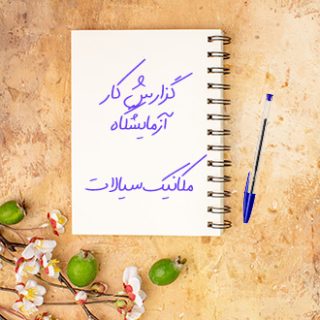 گزارش کار
آزمایشگاه
مکانیک سیالات